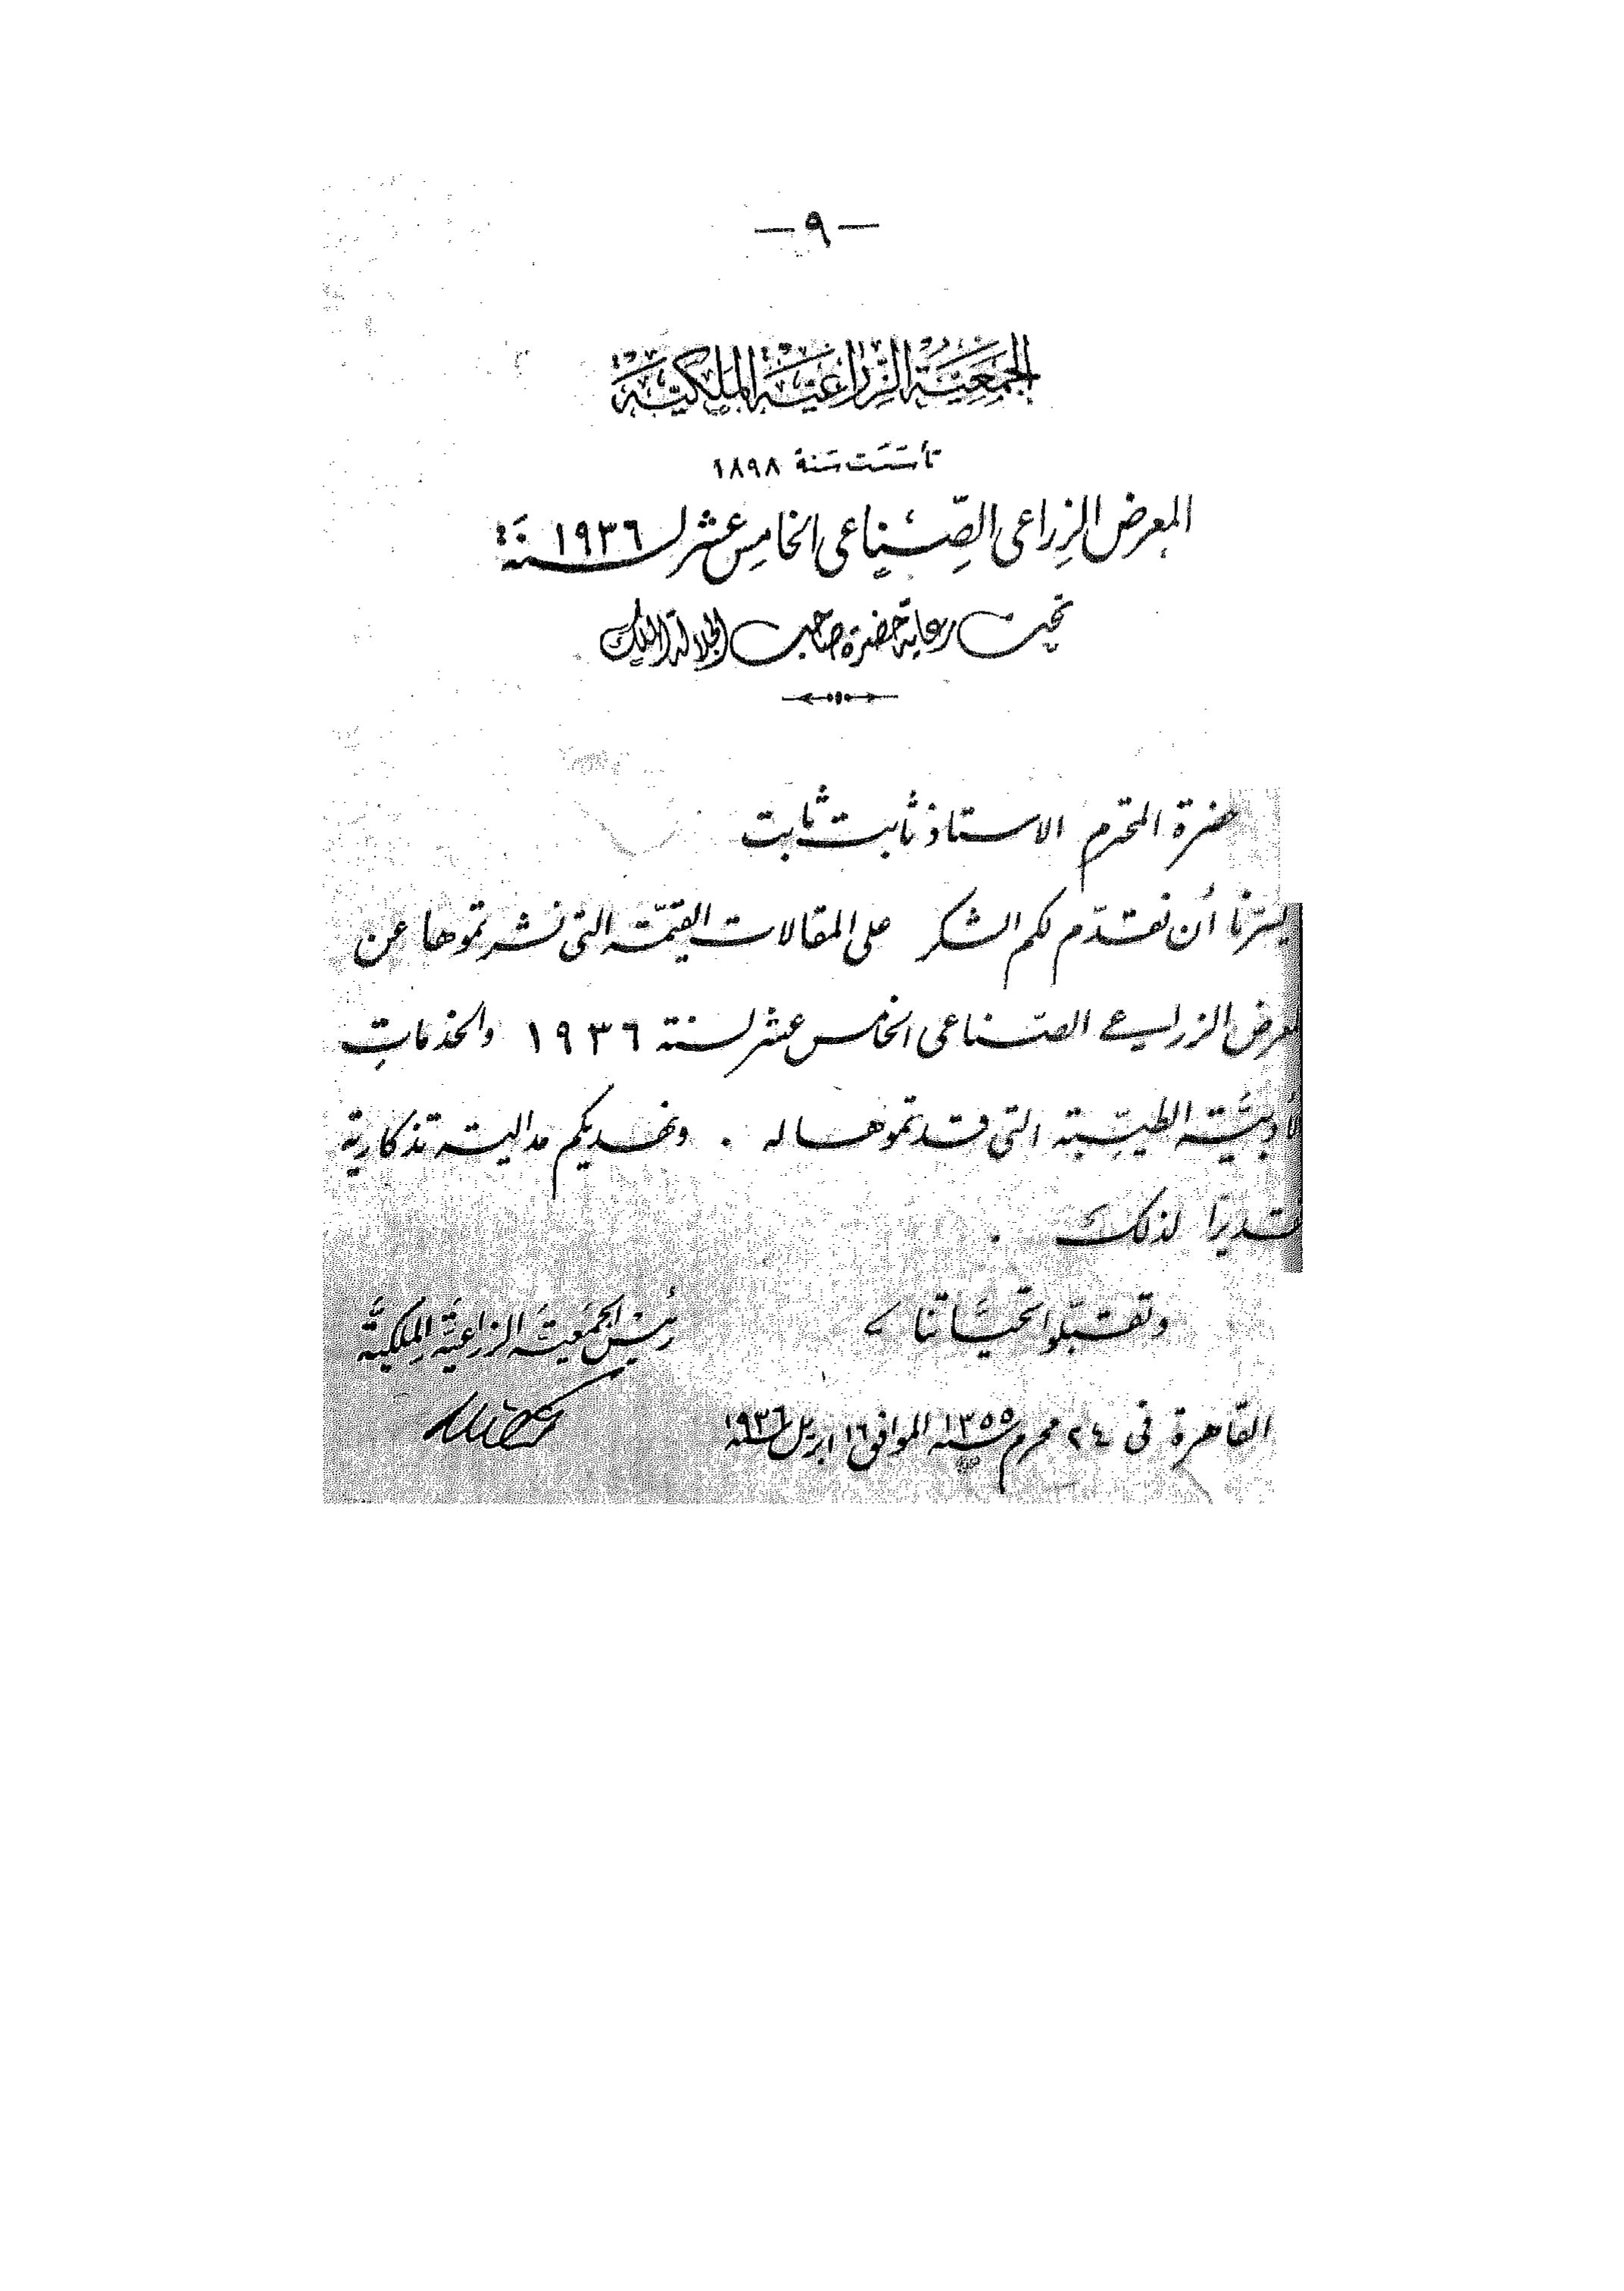 — ٩ —
الجمعية الزراعية الملكية
تأسست سنة ١٨٩٨
المعرض الزراعى الصناعى الخامس عشر لسنة ١٩٣٦
تحت رعاية حضرة صاحب الجلالة الملك
حضرة المحترم الاستاذ ثابت ثابت
يسرنا أن نقدّم لكم الشكر على المقالات القيّمة التى نشرتموها عن
لمعرض الزراعى الصناعى الخامس عشر لسنة ١٩٣٦ والخدمات
لأدبية الطيّبة التى قدتموها له . ونهديكم مدالية تذكارية
تقديرًا لذلك .
وتقبّلوا تحيّاتنا
رئيس الجمعية الزراعية الملكية
القاهرة فى ٢٤ محرم سنة ١٣٥٥ الموافق ١٦ ابريل سنة ١٩٣٦